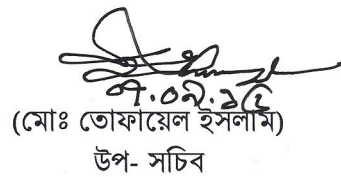 ৭.০৯.১৫
(মোঃ তোফায়েল ইসলাম)
উপ- সচিব